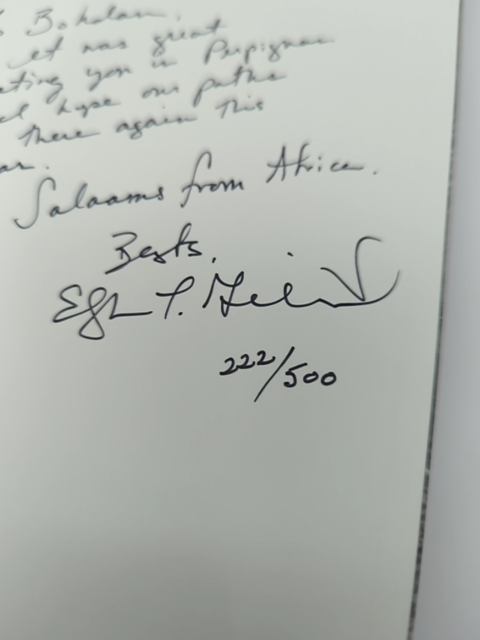 Bohdan.
it was great
ting you in Perpignan
hope our paths
there again this
ar.
Salaams from Africa.
Bests,
222/500